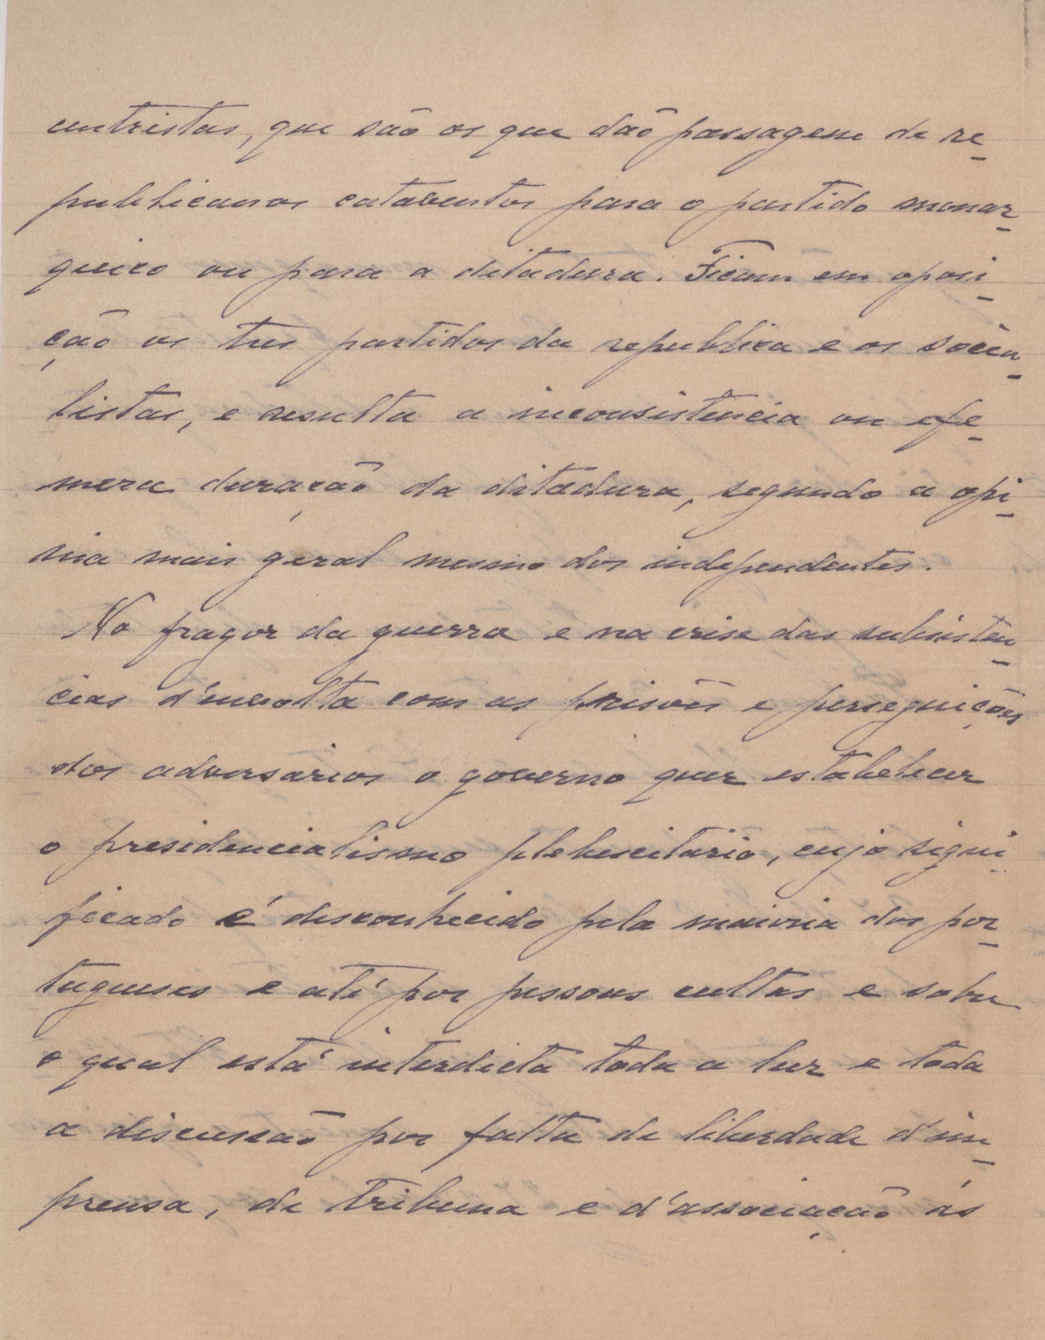 centristas, que são os que dão passagem de re-
publicanos cataventos para o partido monar-
quico ou para a ditadura. Ficam em oposi-
ção os tres partidos da republica e os socia-
listas, e resulta a inconsistência ou efe-
mera duração da ditadura, segundo a opi-
nia mais geral mesmo dos independentes.
No fragor da guerra e na crise das subsistên-
cias d'envolta com as prisões e perseguições
dos adversarios o governo quer estabelecer
o presidencialismo plebiscitário, cujo signi-
ficado é desconhecido pela maioria dos por-
tugueses e até por pessoas cultas e sobre
o qual está interdicta toda a luz e toda
a discussão por falta de liberdade d'im-
prensa, de tribuna e d'associação ás